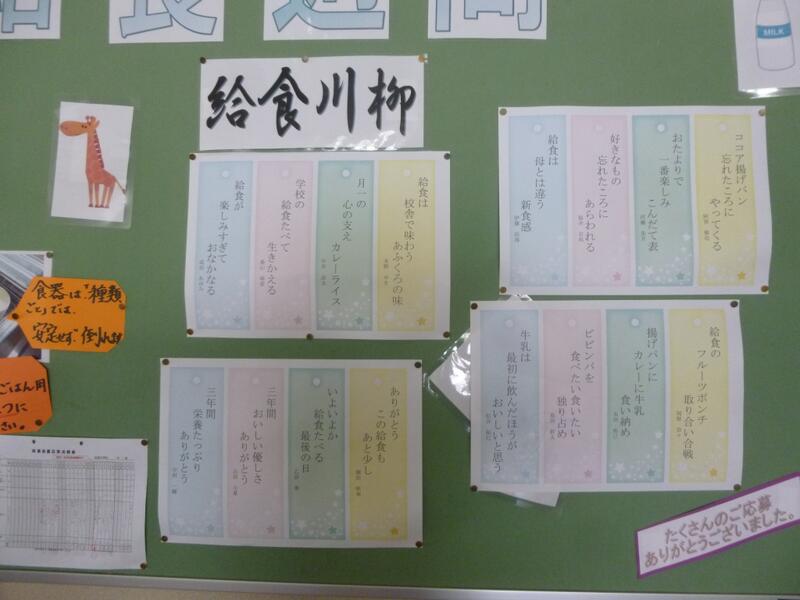 給食週間
MILK
給食川柳
ココア揚げパン
忘れたころに
やってくる
おたよりで
一番楽しみ
こんだて表
好きなもの
忘れたころに
あらわれる
給食は
母とは違う
新食感
給食は
校舎で味わう
おふくろの味
月一の
心の支え
カレーライス
学校の
給食たべて
生きかえる
給食が
楽しみすぎて
おなかなる
給食の
フルーツポンチ
取り合い合戦
揚げパンに
カレーに牛乳
食い納め
ビビンバを
食べたい食いたい
独り占め
牛乳は
最初に飲んだほうが
おいしいと思う
ありがとう
この給食も
あと少し
いよいよか
給食たべる
最後の日
三年間
おいしい優しさ
ありがとう
三年間
栄養たっぷり
ありがとう
食器は「種類
ごと」では、
安定せず倒れます
ごはん用
さい。
たくさんのご応募
ありがとうございました。